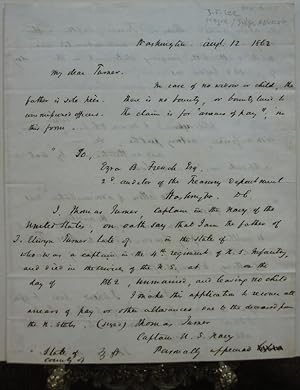 J. F. Lee
Major / Judge Advocate
Washington Augt 12 1862
My dear Turner.
In case of no widow or child, the
father is sole heir. There is no bounty, or bounty land to
commissioned officers. The claim is for arrears of pay, in
this form.
"To,
Ezra B. French Esq.
2d auditor of the Treasury department
Washington D C
I, Thomas Turner, Captain in the navy of the
United States, on oath say that I am the father of
J. Elwyn Turner late of in the state of
who was a captain in the 4th regiment of U. S. Infantry,
and died in the service of the U. S. at on the
day of 1862, unmarried, and leaving no child
I make this application to recover all
arrears of pay or other allowances due to the deceased from
the U. States (sigd) Thomas Turner
Captain U. S. Navy
State of
County of Personally appeared